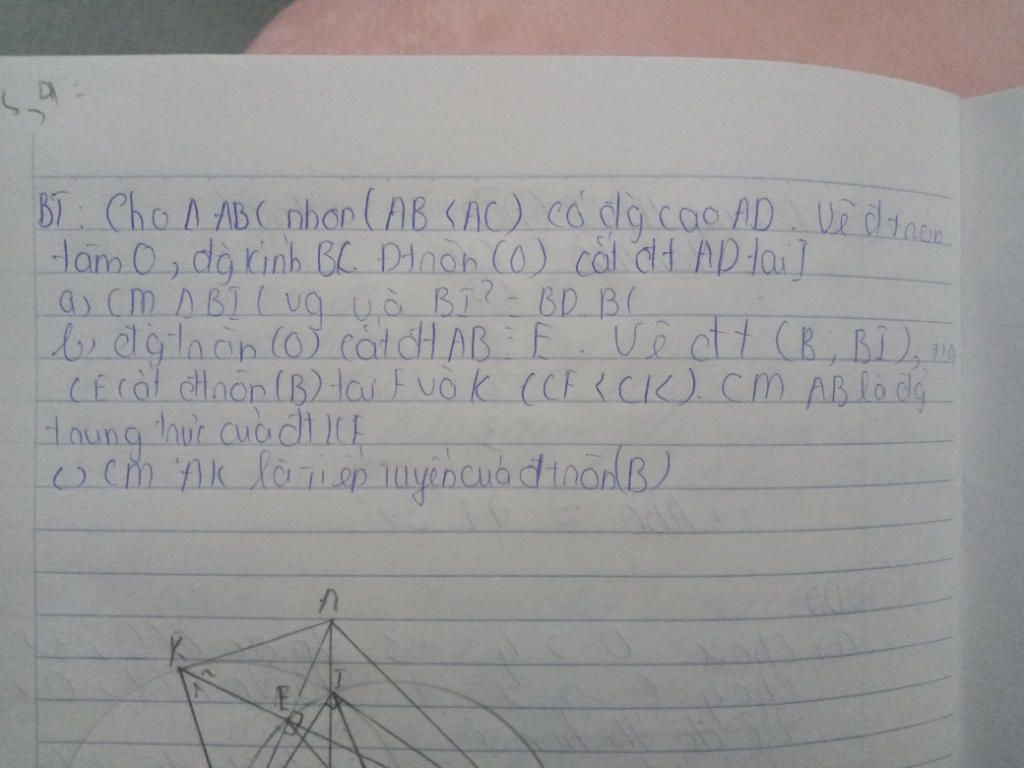 BT: Cho Δ ABC nhọn (AB < AC) có đg cao AD. Vẽ đtròn
tâm O, đg kính BC. Đtròn (O) cắt đt AD tại I
a, CM Δ BIC vg và BI² = BD.BC
b, đg tròn (O) cắt đt AB : E. Vẽ đtt (B; BI),
CE cắt đtròn (B) tại F và K (CF < CK). CM AB là đg
trung trực của đt KF
c) CM AK là tiếp tuyến của đtròn (B)
A
K
I
E